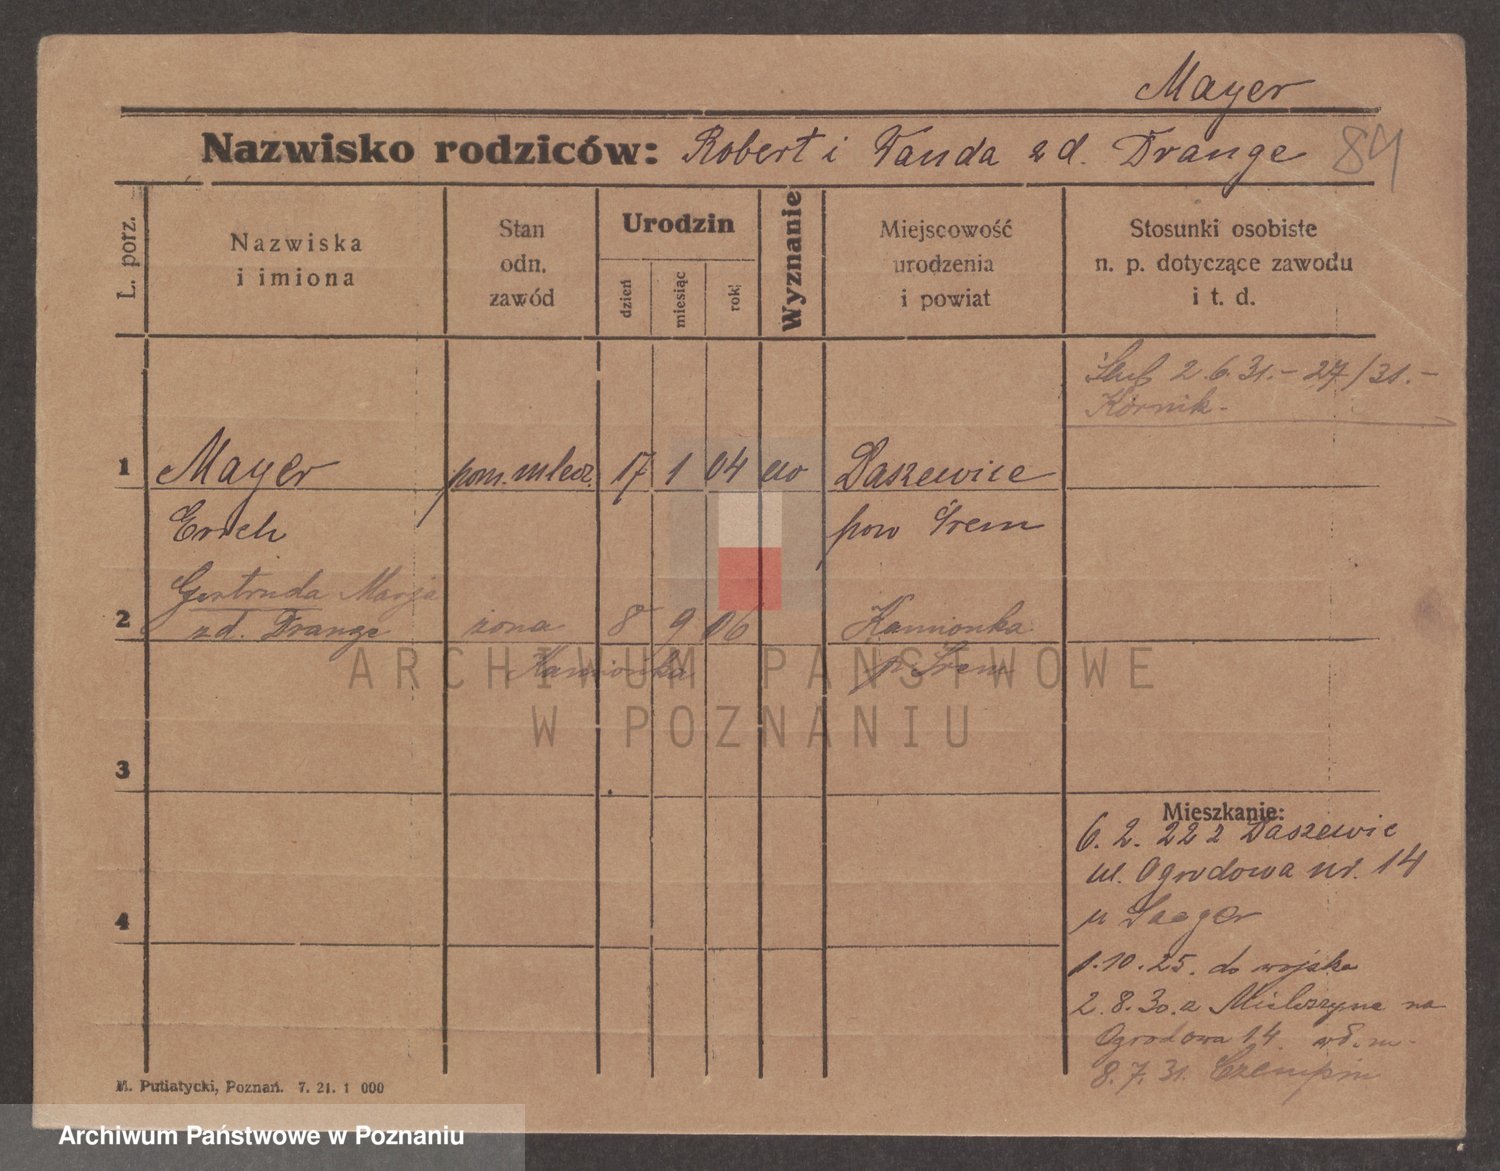 Mayer
Nazwisko rodziców: Robert i Wanda z d. Drange
84
L. porz.
Nazwiska
i imiona
Stan
odn.
zawód
Urodzin
dzień
miesiąc
rok
Wyznanie
Miejscowość
urodzenia
i powiat
Stosunki osobiste
n. p. dotyczące zawodu
i t. d.
Ślub 2.6.31.- 27/31.-
Kórnik.-
1 Mayer pom. mlecz. 17 1 04 ew Daszewice
Erich pow Śrem
Gertruda Marja
2 zd. Drange żona 8 9 06 Kamionka
Kamionka p. Śrem
ARCHIWUM PAŃSTWOWE
W POZNANIU
3
Mieszkanie:
6.2.22 z Daszewic
ul. Ogrodowa nr. 14
u Saeger
4
1.10.25. do wojska
2.8.30. z na
Ogrodowa 14
8.7.31. Czempiń
M. Putiatycki, Poznań. 7. 21. 1 000
Archiwum Państwowe w Poznaniu